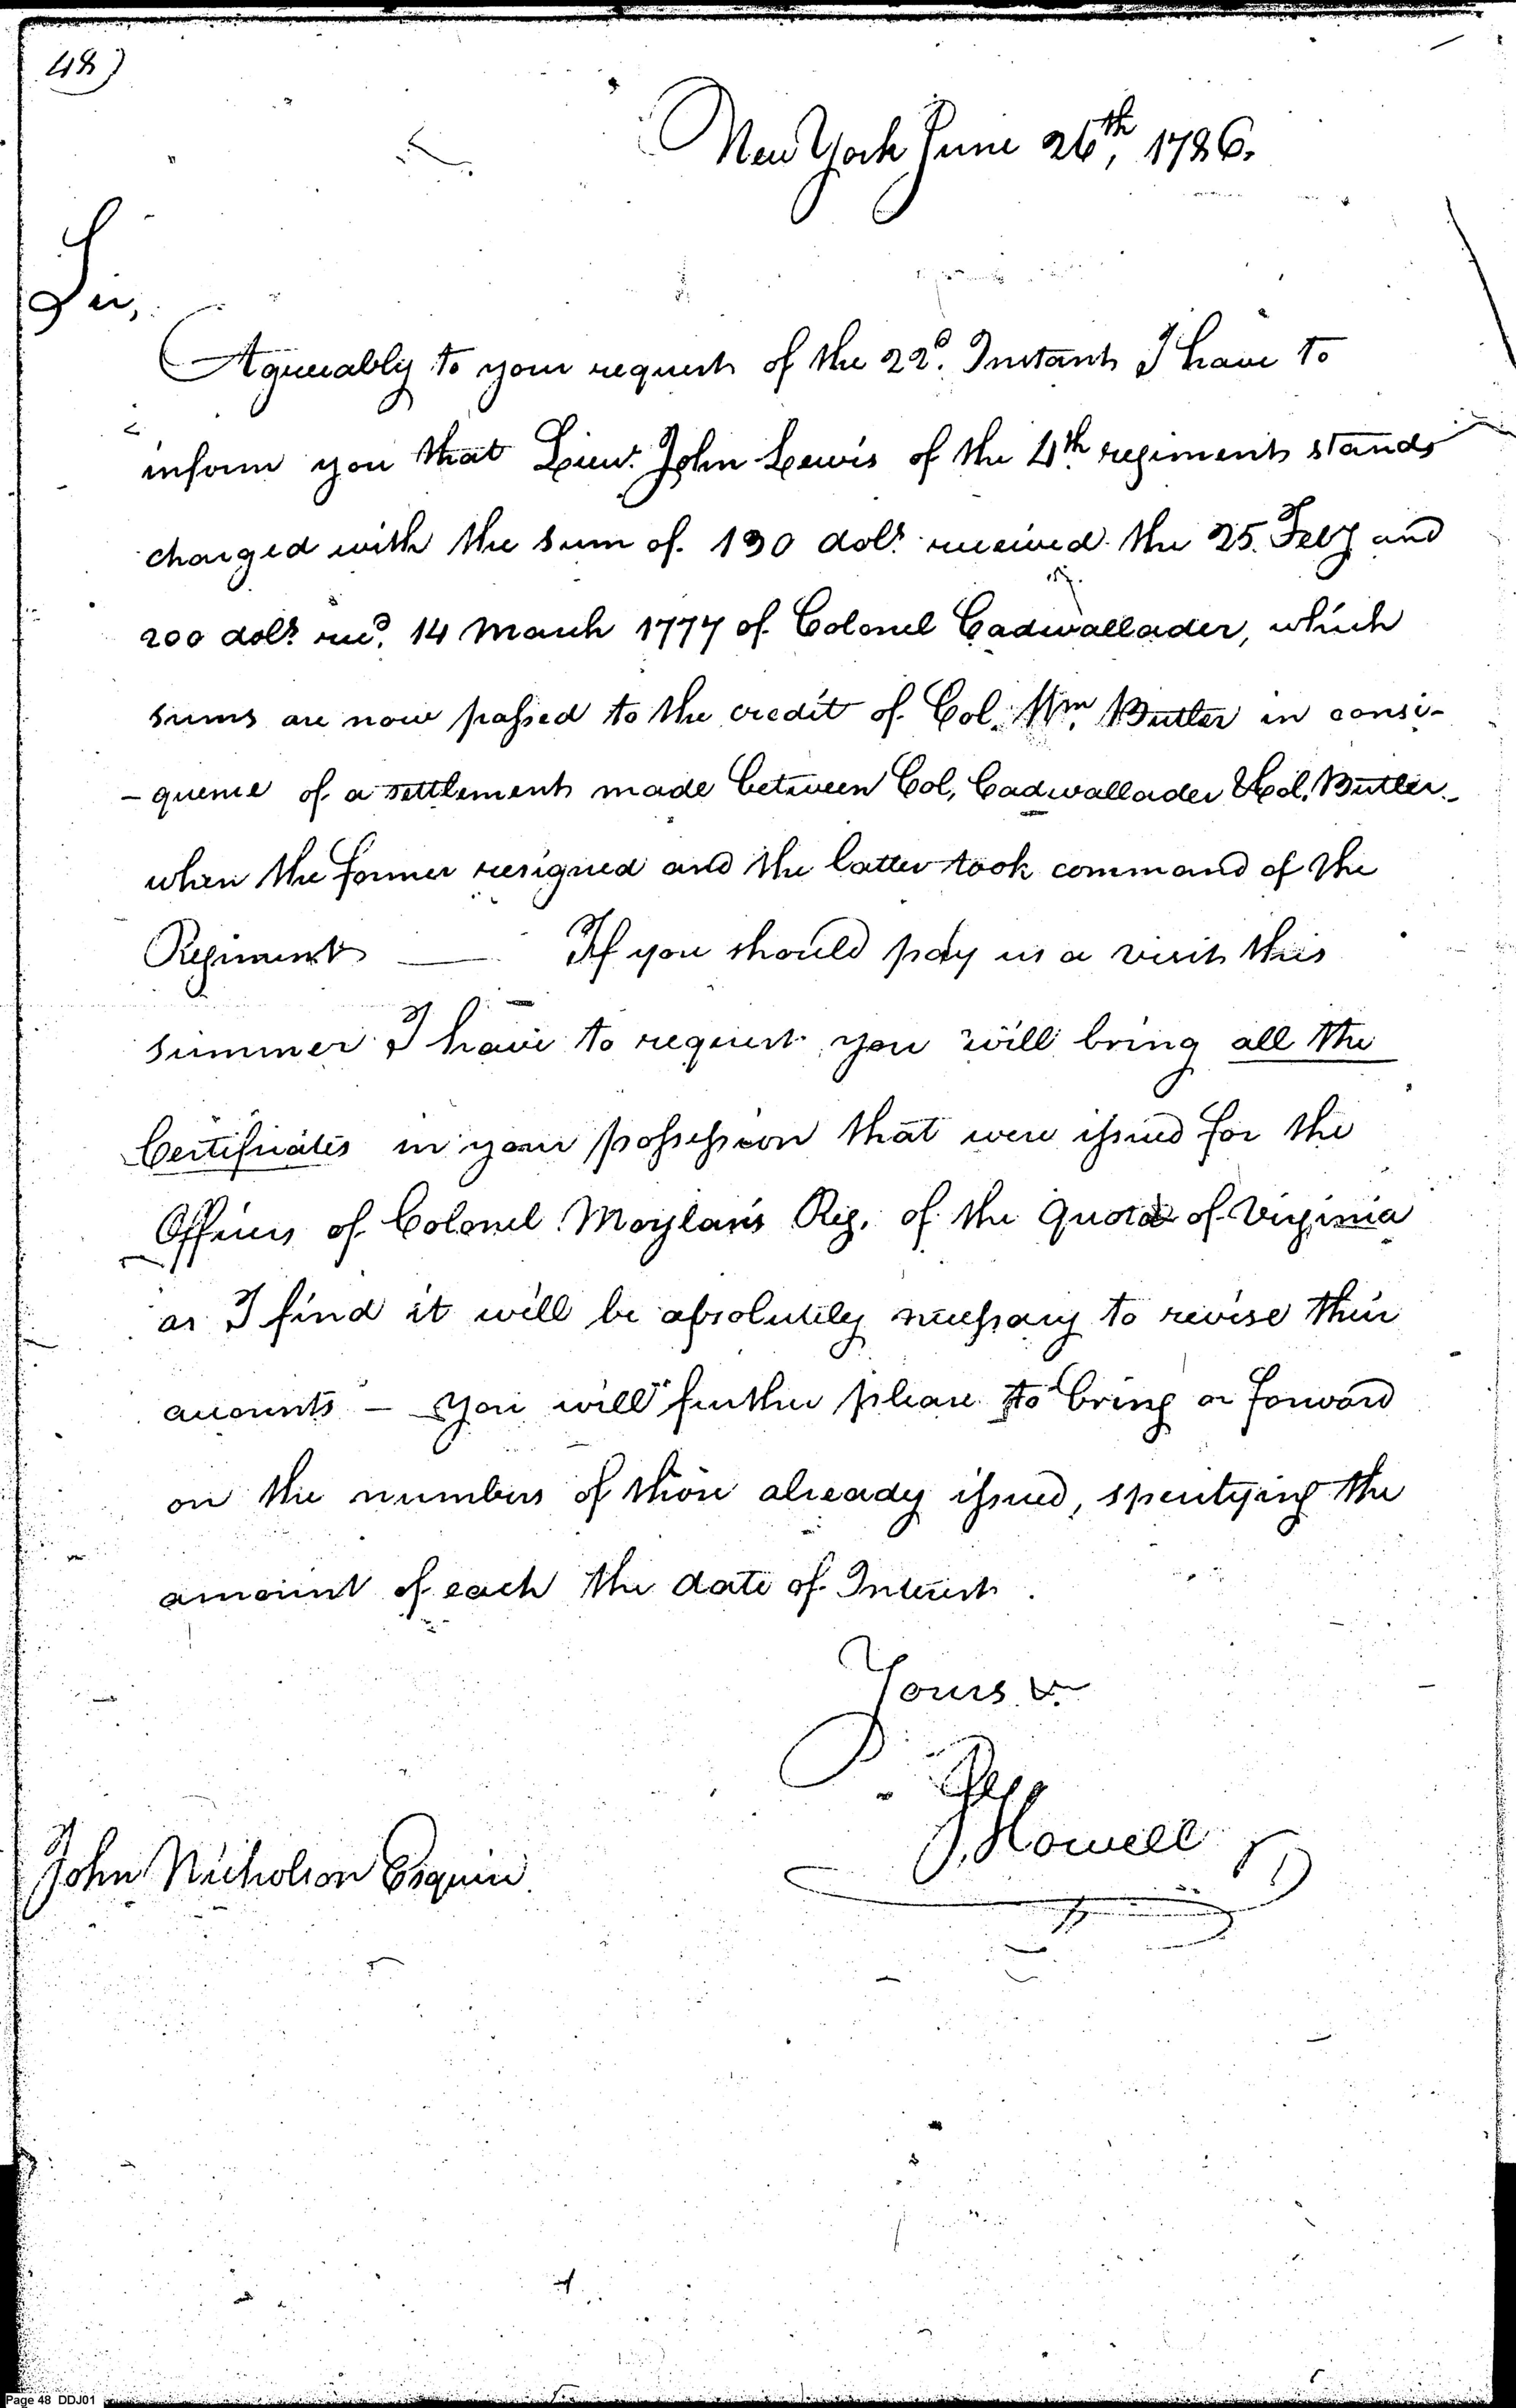 48)
New York June 26th, 1786.
Sir,
Agreeably to your request of the 22d. Instant I have to
inform you that Lieu.t John Lewis of the 4th. regiment stands
charged with the sum of 130 dols. received the 25. Feby and
200 dols. recd. 14 March 1777 of Colonel Cadwallader, which
sums are now passed to the credit of Col. Wm. Butler in conse-
-quence of a settlement made between Col. Cadwallader & Col. Butler
when the former resigned and the latter took command of the
Regiment — If you should pay us a visit this
summer I have to request you will bring all the
Certificates in your possession that were issued for the
Officers of Colonel Moylan's Reg. of the Quota of Virginia
as I find it will be absolutely necessary to revise their
accounts – you will further please to bring or forward
on the numbers of those already issued, specifying the
amount of each the date of Interest.
Yours &c.
J. Howell
John Nicholson Esquire
Page 48 DDJ01